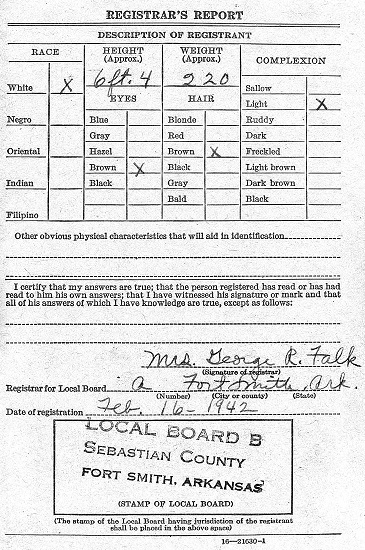 REGISTRAR'S REPORT
DESCRIPTION OF REGISTRANT
RACE HEIGHT (Approx.) WEIGHT (Approx.) COMPLEXION
6 ft. 4 220
White X EYES HAIR Sallow
Light X
Negro Blue Blonde Ruddy
Gray Red Dark
Oriental Hazel Brown X Freckled
Brown X Black Light brown
Indian Black Gray Dark brown
Bald Black
Filipino
Other obvious physical characteristics that will aid in identification
I certify that my answers are true; that the person registered has read or has had
read to him his own answers; that I have witnessed his signature or mark and that
all of his answers of which I have knowledge are true, except as follows:
Mrs. George R. Falk
(Signature of registrar)
Registrar for Local Board a Fort Smith, Ark.
(Number) (City or county) (State)
Date of registration Feb. 16-1942
LOCAL BOARD B
SEBASTIAN COUNTY
FORT SMITH, ARKANSAS
(STAMP OF LOCAL BOARD)
(The stamp of the Local Board having jurisdiction of the registrant
shall be placed in the above space)
16—21630-1